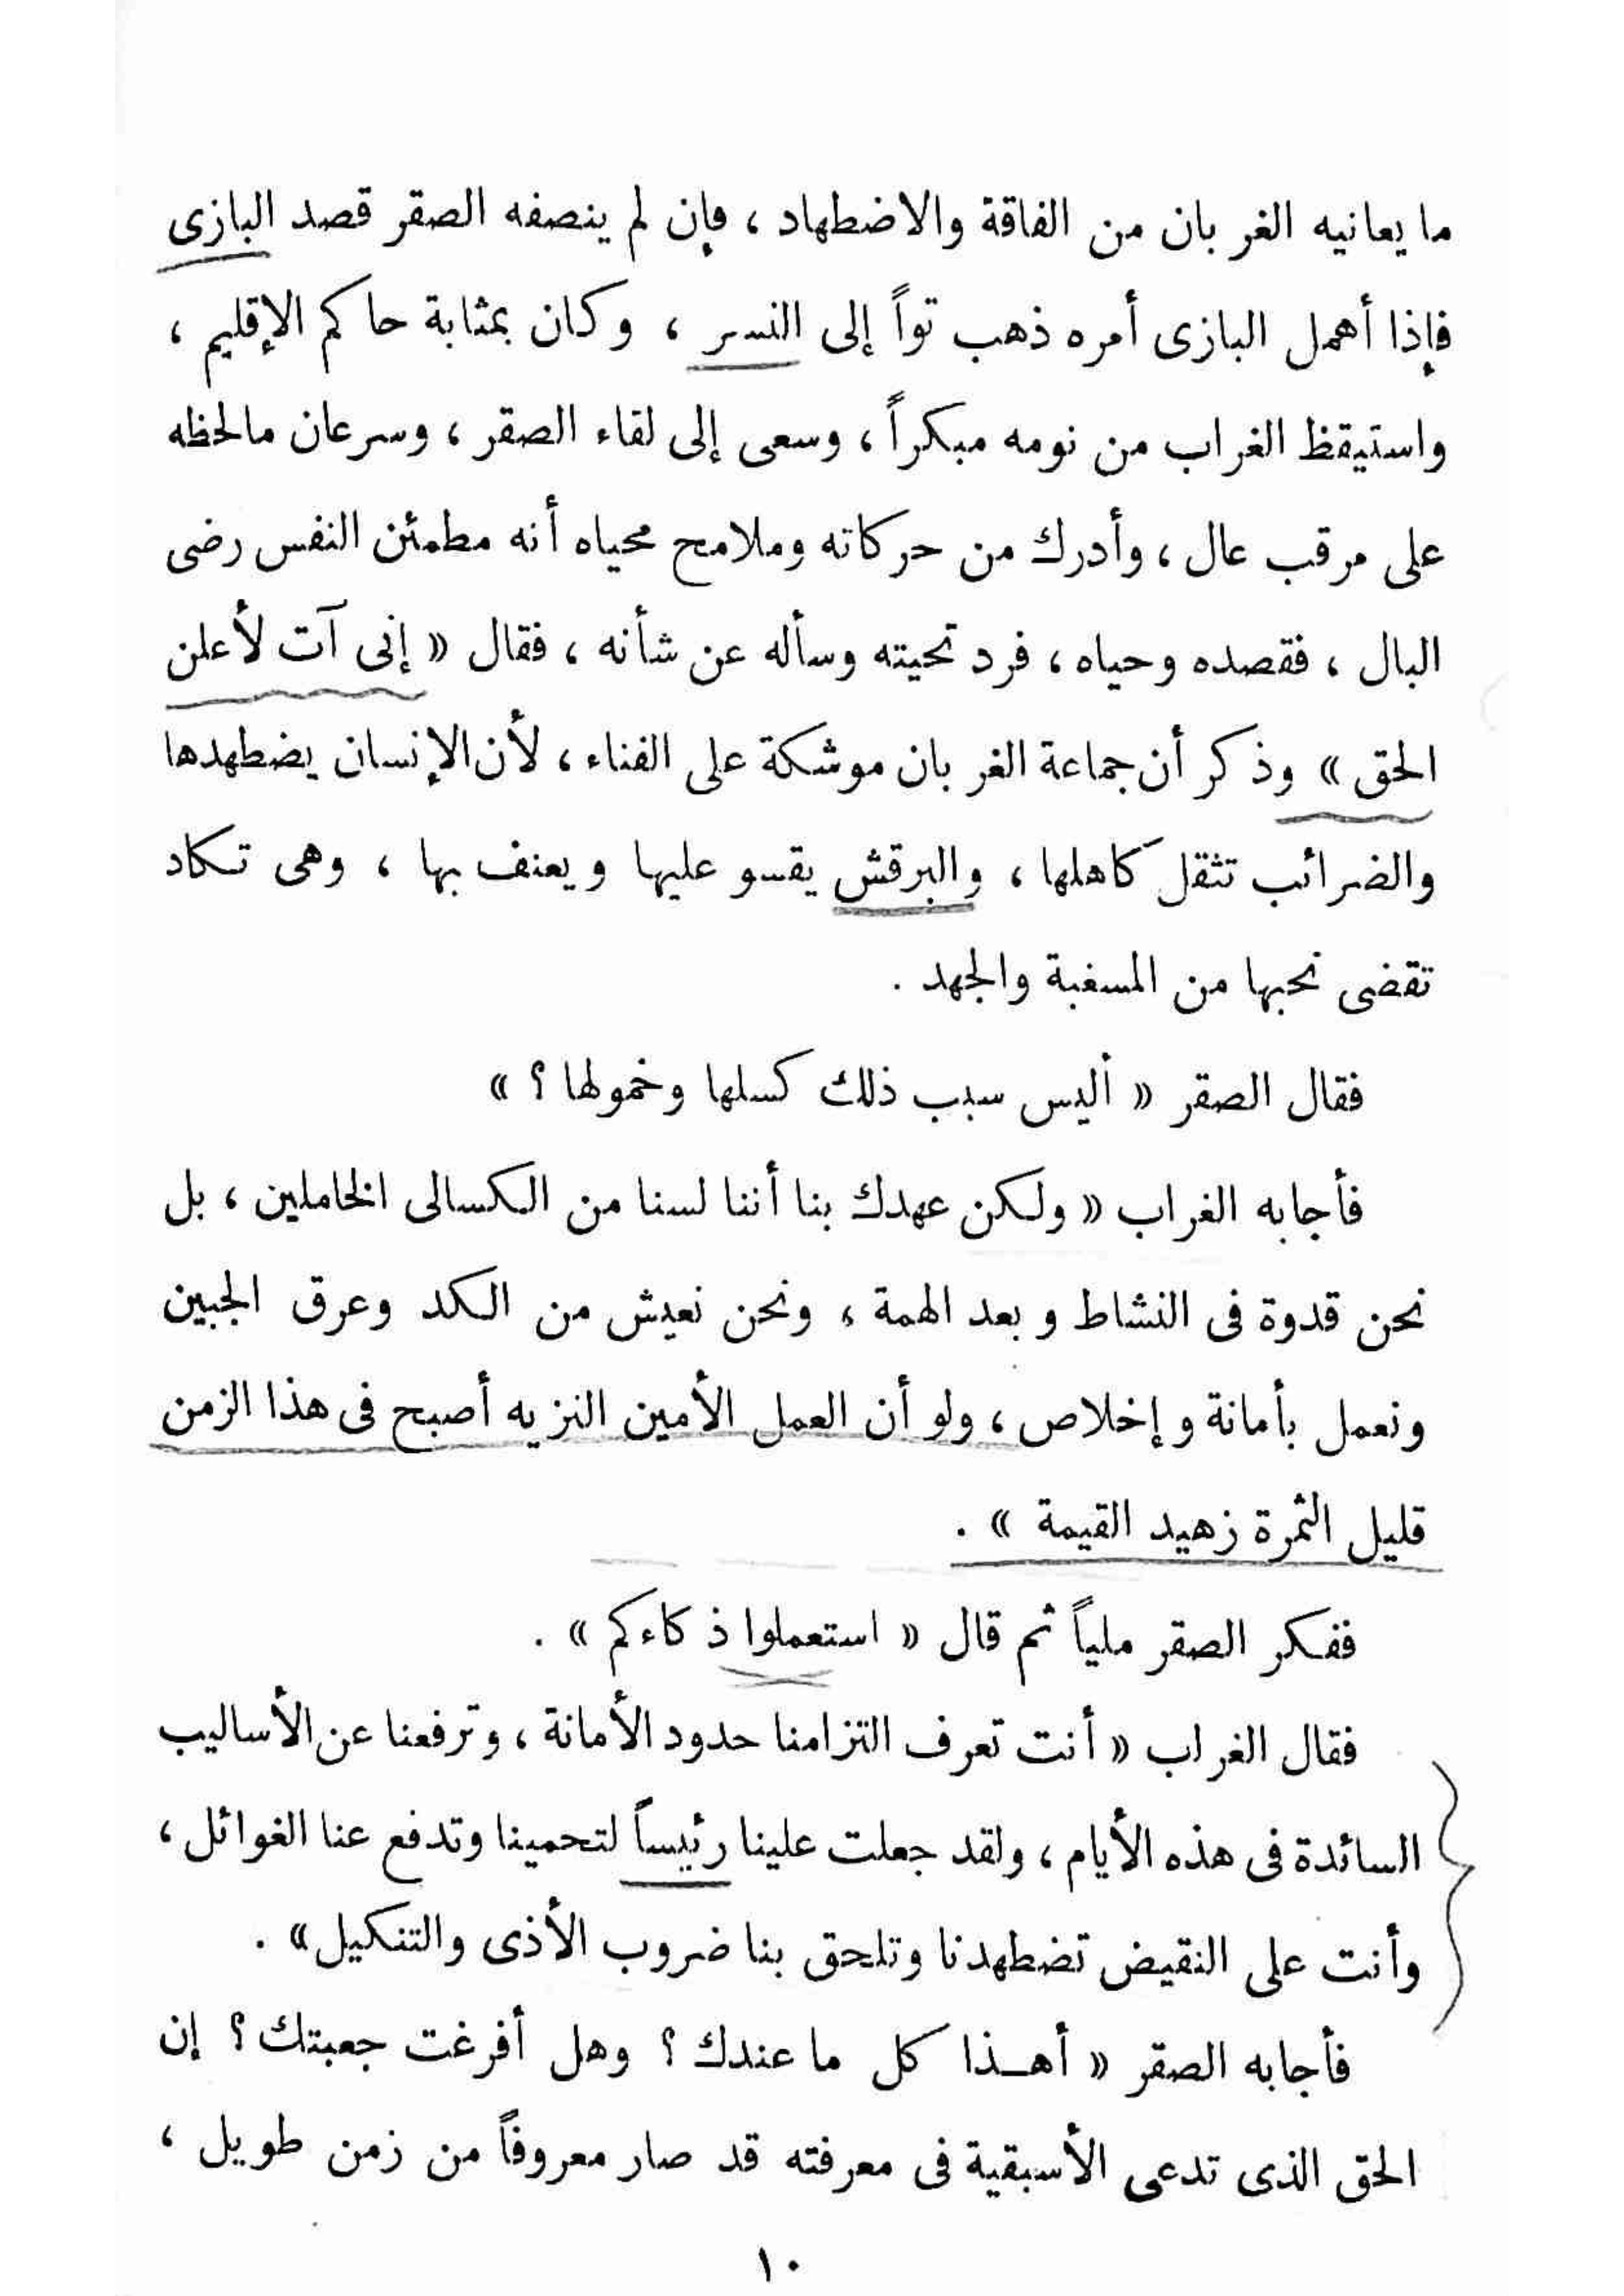 ما يعانيه الغربان من الفاقة والاضطهاد ، فإن لم ينصفه الصقر قصد البازى
فإذا أهمل البازى أمره ذهب تواً إلى النسر ، وكان بمثابة حاكم الإقليم ،
واستيقظ الغراب من نومه مبكراً ، وسعى إلى لقاء الصقر ، وسرعان مالحظه
على مرقب عال ، وأدرك من حركاته وملامح محياه أنه مطمئن النفس رضى
البال ، فقصده وحياه ، فرد تحيته وسأله عن شأنه ، فقال « إنى آت لأعلن
الحق » وذكر أن جماعة الغربان موشكة على الفناء ، لأن الإنسان يضطهدها
والضرائب تثقل كاهلها ، والبرقش يقسو عليها ويعنف بها ، وهى تكاد
تقضى نحبها من المسغبة والجهد .
فقال الصقر « أليس سبب ذلك كسلها وخمولها ؟ »
فأجابه الغراب « ولكن عهدك بنا أننا لسنا من الكسالى الخاملين ، بل
نحن قدوة فى النشاط وبعد الهمة ، ونحن نعيش من الكد وعرق الجبين
ونعمل بأمانة وإخلاص ، ولو أن العمل الأمين النزيه أصبح فى هذا الزمن
قليل الثمرة زهيد القيمة » .
ففكر الصقر ملياً ثم قال « استعملوا ذكاءكم » .
فقال الغراب « أنت تعرف التزامنا حدود الأمانة ، وترفعنا عن الأساليب
السائدة فى هذه الأيام ، ولقد جعلت علينا رئيساً لتحمينا وتدفع عنا الغوائل ،
وأنت على النقيض تضطهدنا وتلحق بنا ضروب الأذى والتنكيل » .
فأجابه الصقر « أهـذا كل ما عندك ؟ وهل أفرغت جعبتك ؟ إن
الحق الذى تدعى الأسبقية فى معرفته قد صار معروفاً من زمن طويل ،
١٠